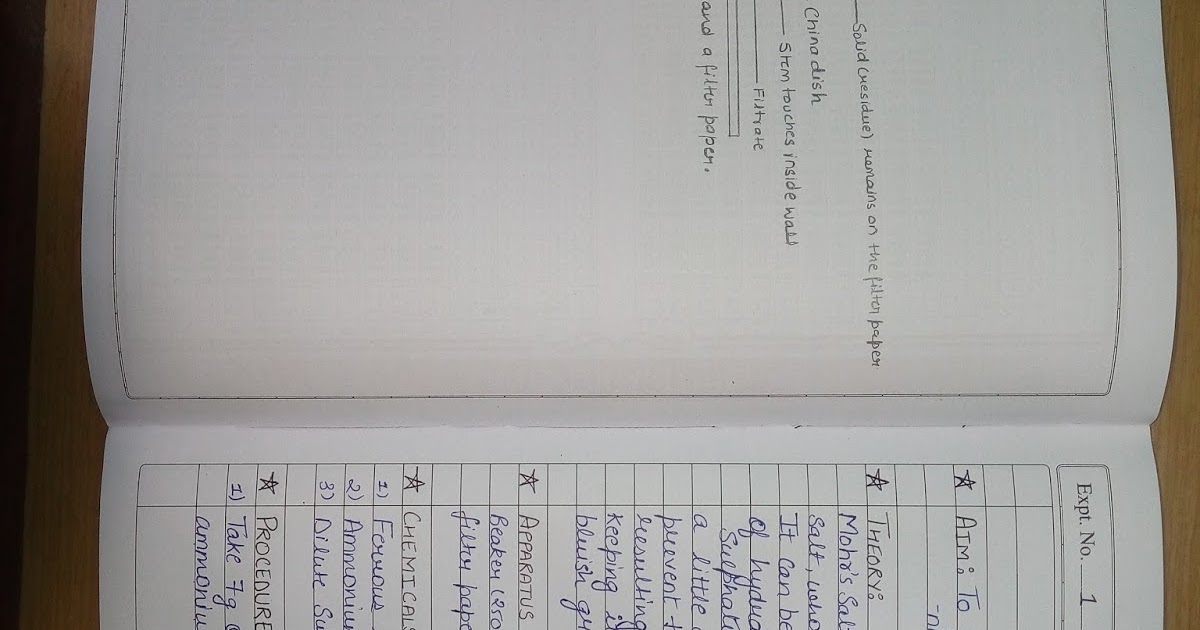 Solid (residue) remains on the filter paper
China dish
Stem touches inside wall
Filtrate
and a filter paper.
Expt. No. 1
☆ AIM: To
☆ THEORY:
Mohr's Sal
Salt, who
It can be
Of hydra
a little
prevent t
resulting
Keeping i
bluish gr
☆ APPARATUS
Beaker (250
filter pape
☆ CHEMICALS
1) Ferrous
2) Ammonium
3) Dilute Su
☆ PROCEDURE
1) Take 7g
ammoniu